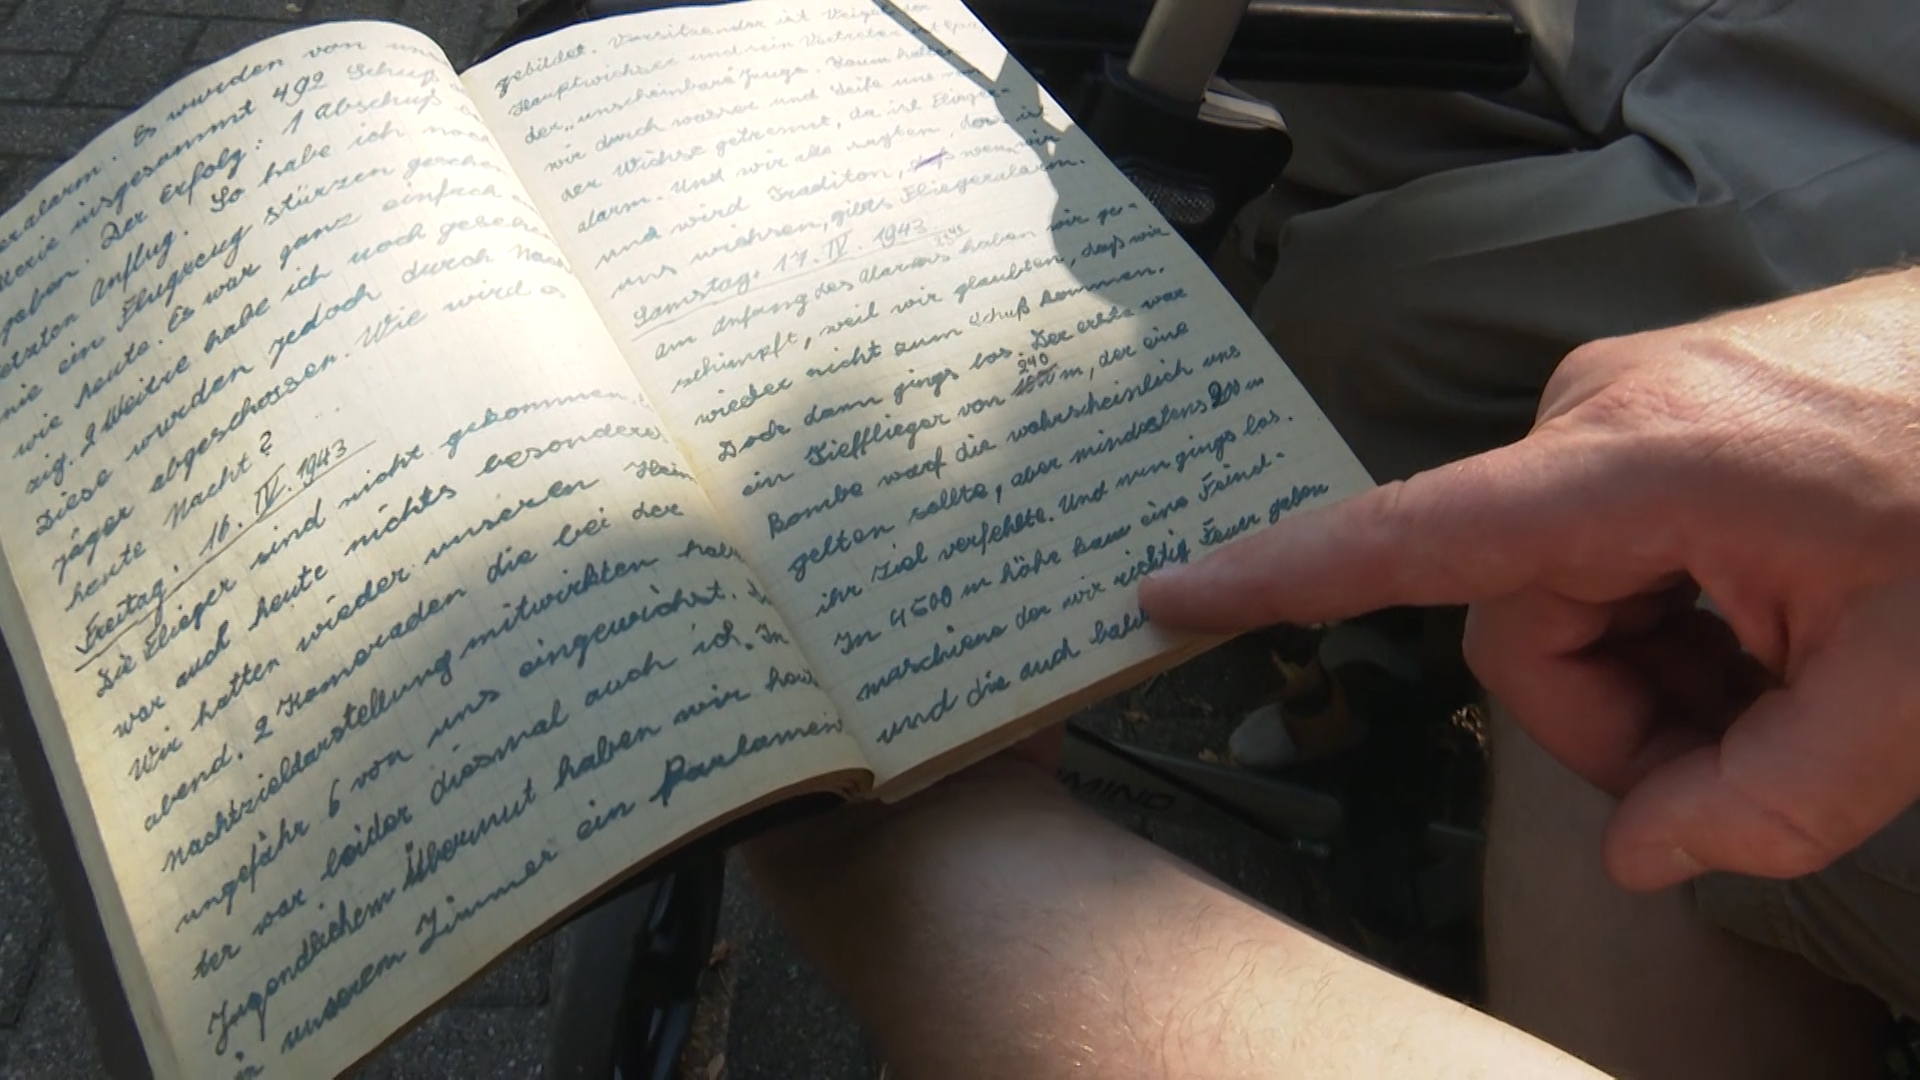 eralarm. Es wurden von uns
insgesammt 492 Schuß
geben. Der Erfolg: 1 Abschuß
letzten Anflug. So habe ich noch
nie ein Flugzeug stürzen gesehen
wie heute. Es war ganz einfach
zig. 2 Weitere habe ich noch gesehen
Diese wurden jedoch durch Nacht
jäger abgeschossen. Wie wird es
heute Nacht?
Freitag, 16. IV. 1943
Die Flieger sind nicht gekommen.
war auch heute nichts besonderes
Wir hatten wieder unseren Heim
abend. 2 Kameraden die bei der
Nachtzieldarstellung mitwirkten
ungefähr 6 von uns eingewichst.
ter war leider diesmal auch ich. In
Jugendlichem Übermut haben wir
in unserem Zimmer ein Parlament
gebildet. Vorsitzender ist
Hauptwichser und sein Vertreter
der „unscheinbare" Junge. Kaum hatten
wir durch wasser und Seife uns von
der Wichse getrennt, da ist Flieger-
alarm. Und wir alle sagten, das ist
und wird Tradition, wenn wir
uns wichsen, gibts Fliegeralarm.
Samstag, 17. IV. 1943
Am Anfang des Alarms 23 haben wir ge-
schimpft, weil wir glaubten, daß wir
wieder nicht zum Schuß kommen.
Doch dann gings los. Der erste war
ein Tiefflieger von 240 m, der eine
Bombe warf die wahrscheinlich uns
gelten sollte, aber mindestens 200 m
ihr Ziel verfehlte. Und nun gings los.
In 4500 m höhe kam eine Feind-
maschiene der wir richtig Feuer geben
und die auch bald
MINO